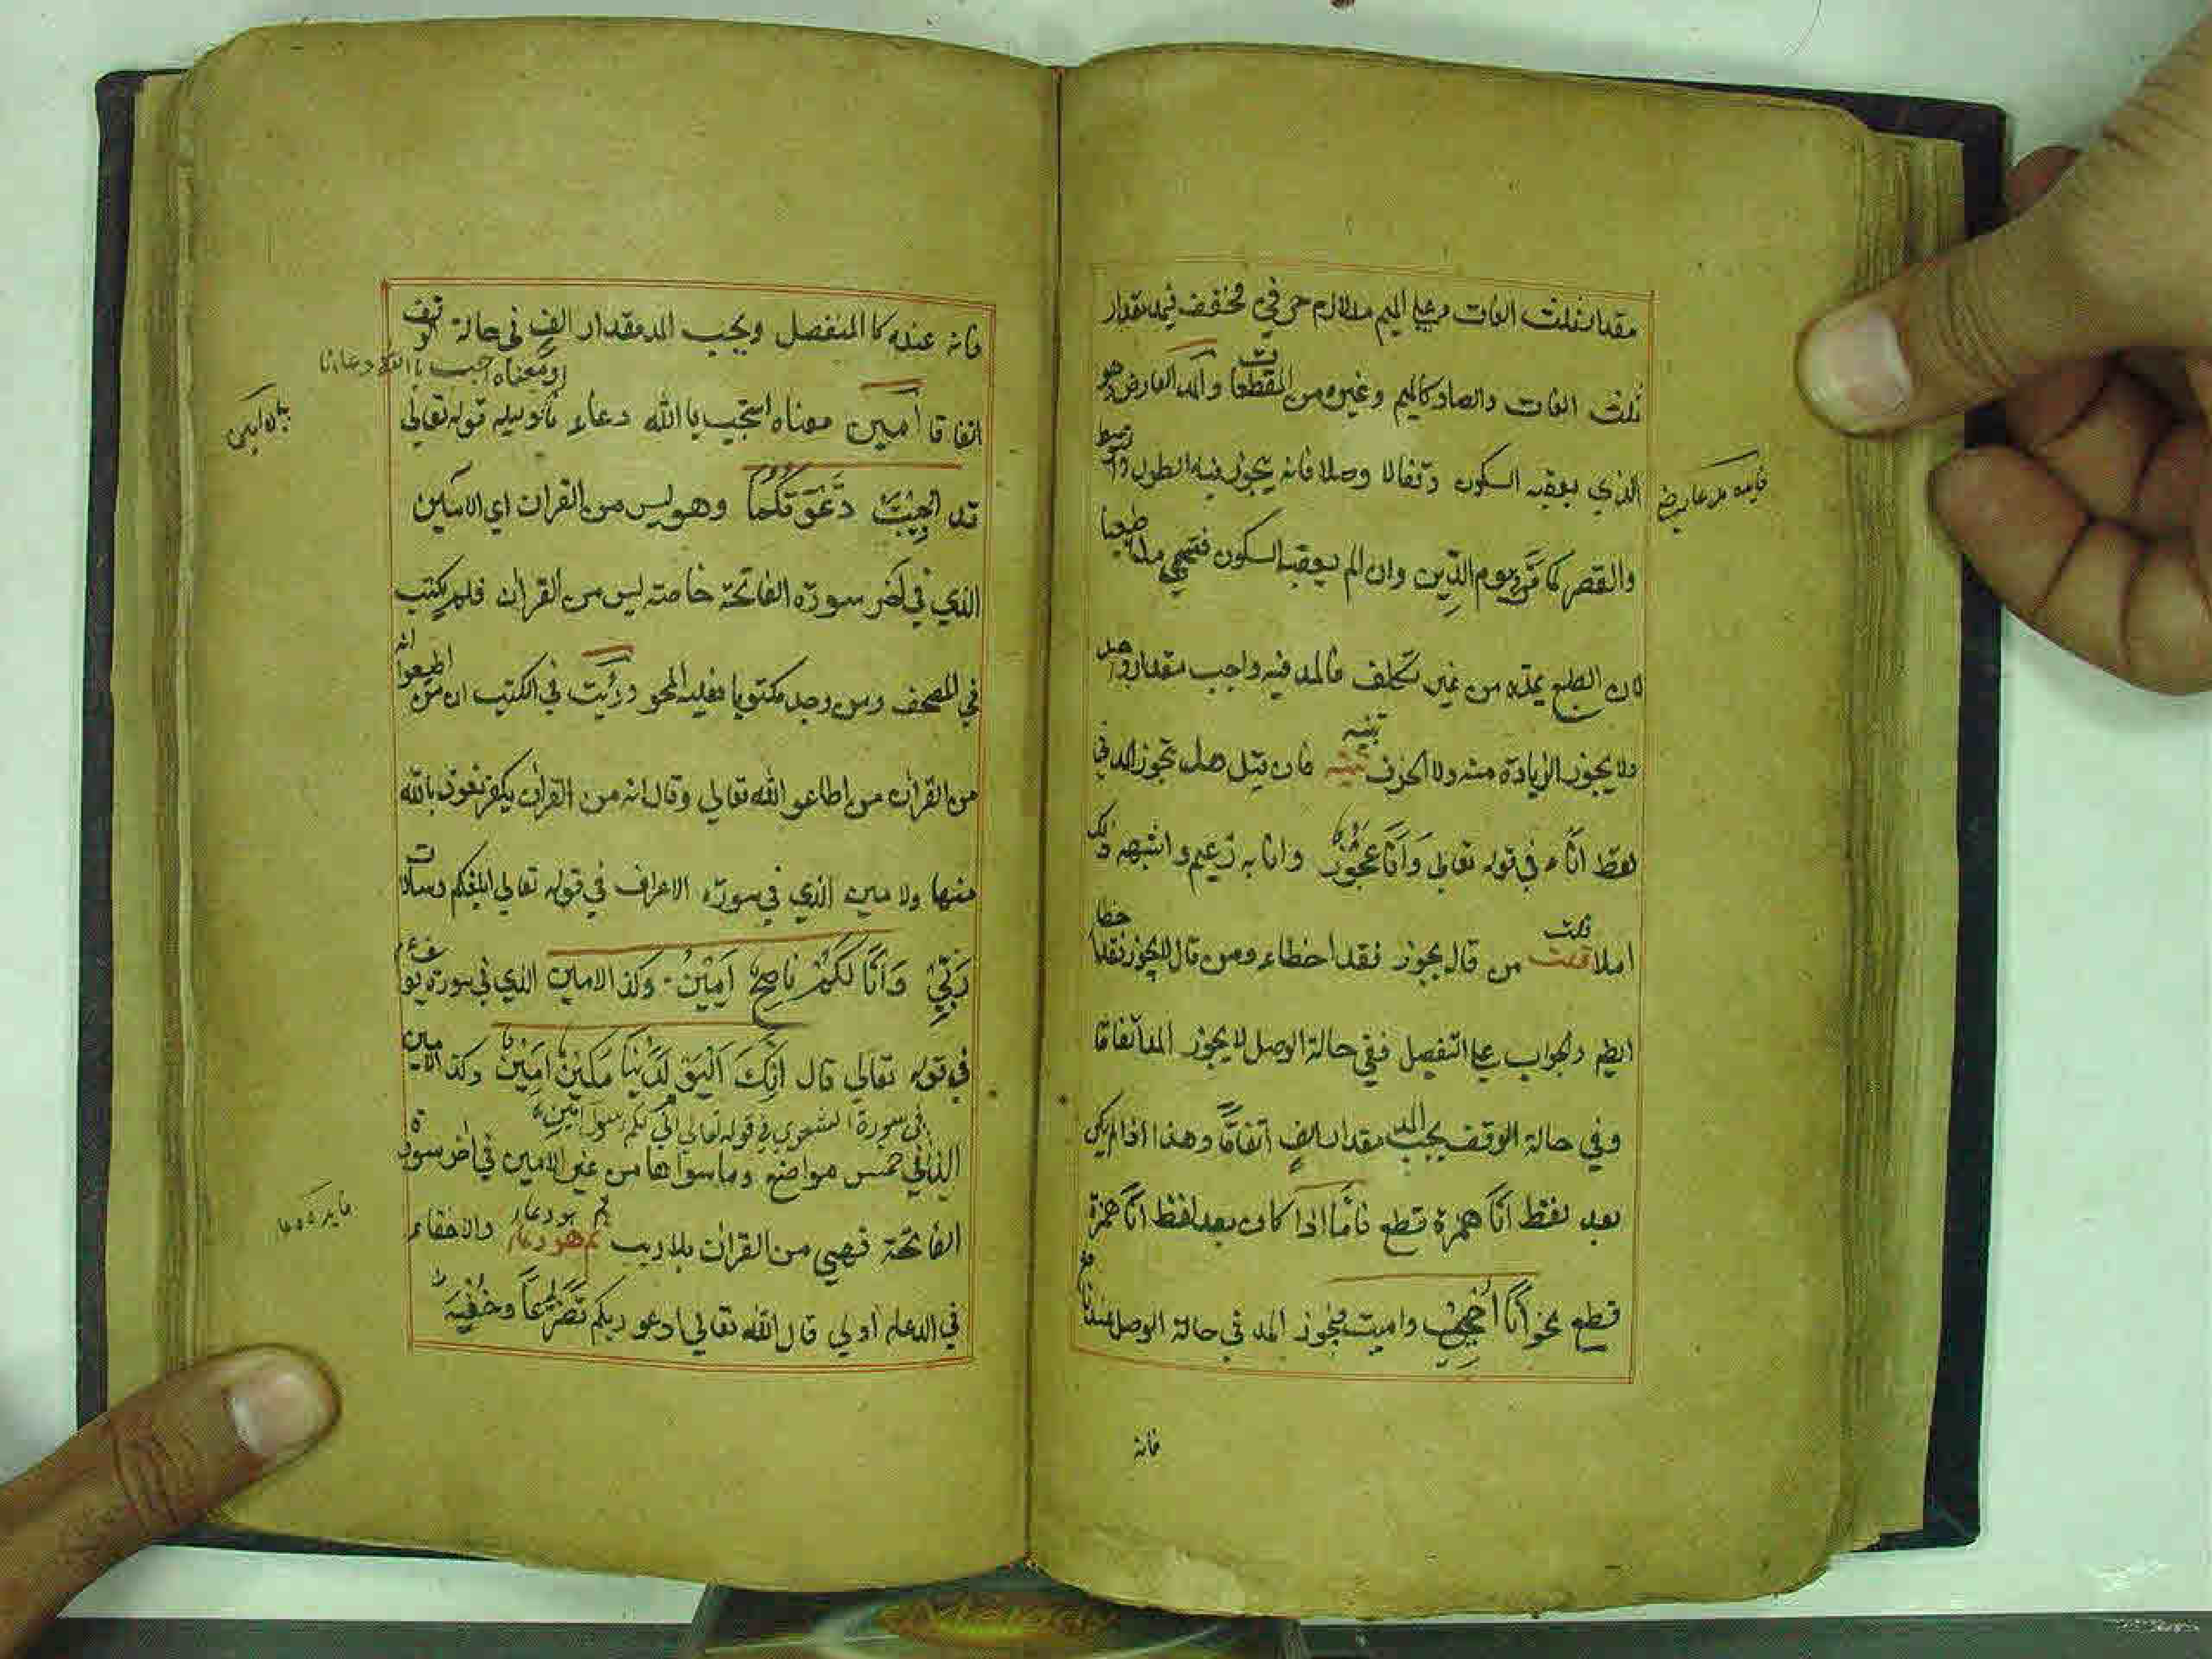 مقدار ثلث الفات وعلي الميم مد لازم حرفي مخفف فيمد بقدار
ثلث الفات والصاد كالميم وغيره من المقطعات والمد العارض هو
الذي يعقبه السكون وقفا لا وصلا فانه يجوز فيه الطول والتوسط
والقصر كما مَرَّ يوم الدِّينِ وان لم يعقبه السكون فتسمي مدا طبعيا
لان الطبع يمده من غير تكلف فالمد فيه واجب مقدار واحد
ولا يجوز الزيادة منه ولا الحذف تنبيه فان قيل هل تجوز المد في
لفظ انَّاء في قوله تعالي وَاَنَا عَجُوْزٌ وانا به زعيم واشبهه ذلك
املا قلت من قال يجوز فقد اخطاء ومن قال لايجوز فقد اخطا
ايضم والجواب علي التفصيل ففي حالة الوصل لا يجوز المد اتفاقا
وفي حالة الوقف يجب المد مقدار الفٍ اتفاقًا وهذا اذا لم يكن
بعد لفظ انَا همزة قطع فامَّا اذا كان بعد لفظ انَا همزة
قطع نحو اَنَا اُحْيِيْ واميت فيجوز المد في حالة الوصل عند نافع
فانه
فايده مد عارض
فانه عنده كا المنفصل ويجب المد مقدار الف في حالة الوقف
او معناه اجب يا الله دعانا
اتفاقا آمين معناه استجيب يا الله دعاء تأويله قوله تعالي
بيان آمين
قد اُجِيْبَتْ دَّعْوَتُكُمَا وهو ليس من القران اي الامين
الذي في اخر سورة الفاتحة خاصة ليس من القران فلم يكتب
في المصحف ومن وجد مكتوبا فعليه المحو ورَأيْت في الكتب ان من اطيعوا انه
من القران من اطاعو الله تعالي وقال انه من القران يكفر نعوذ بالله
منها ولا مين الذي في سورة الاعراف في قوله تعالي ابلغكم رسالات
رَبِّيْ وَاَنَا لَكُمْ نَاصِحٌ اَمِيْنٌ وكذا الامين الذي في سورة يوسف
في قوله تعالي قال اِنَّكَ الْيَوْمَ لَدَيْنَا مَكِيْنٌ اَمِيْنٌ وكذا الامين
في سورة الشعري في قوله تعالي اني لكم رسول امين
الذي في خمس مواضع وما سواها من غير الامين في اخر سورة
الفاتحة فهي من القران بلا ريب ثم هو دعاء والاخفاء
في الدعاء اولي قال الله تعالي ادعو ربكم تَضَرُّعاً وخُفْيَةً